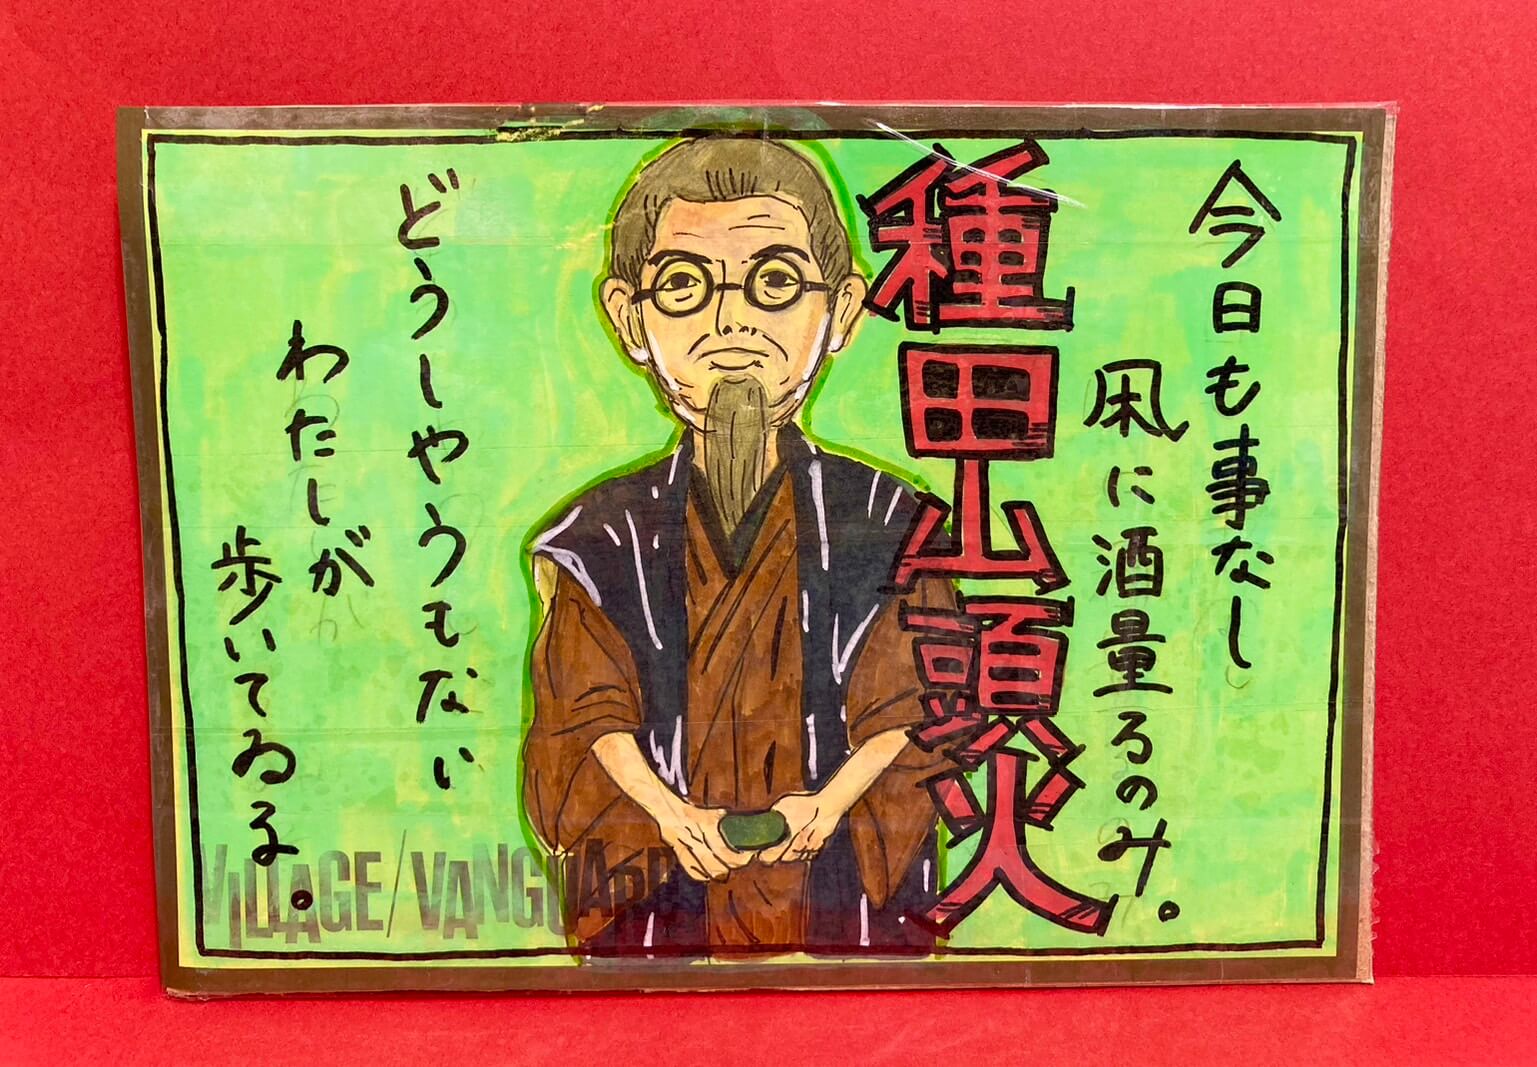 今日も事なし
凩に酒量るのみ。
種田山頭火
どうしやうもない
わたしが
歩いてゐる。
VILLAGE/VANGUARD